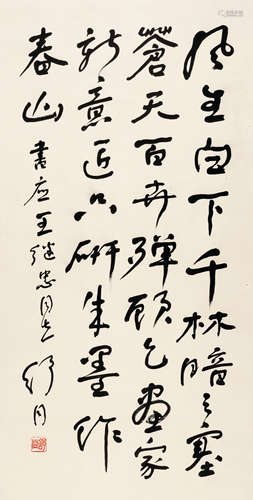 风生白下千林暗雾塞
蒼天百卉殫願乞畫家
新意匠只研朱墨作
春山 書应王继忠同志 舒同